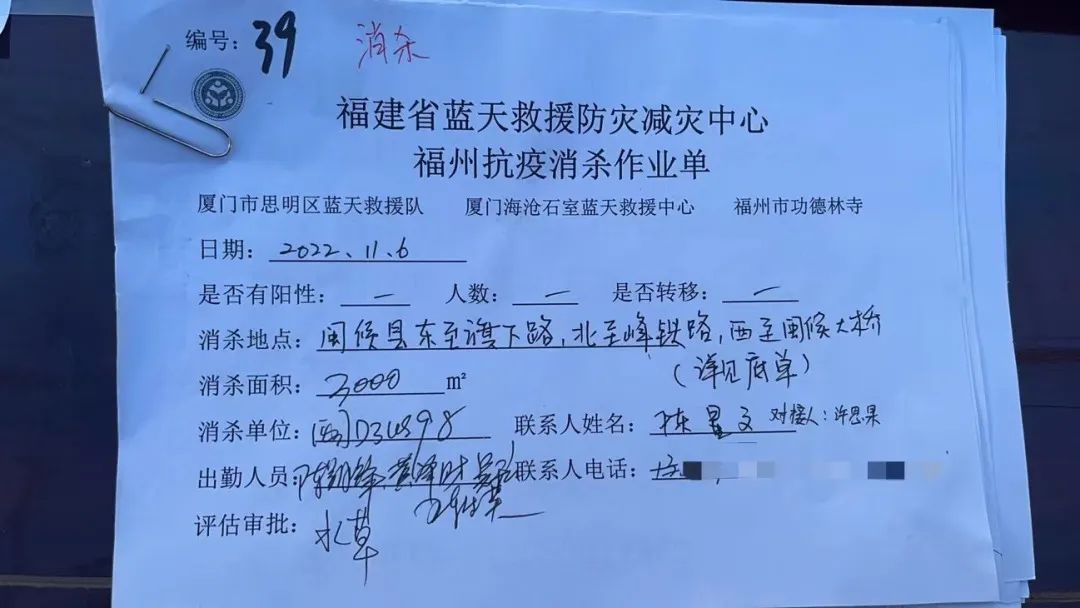 编号：39 消杀
福建省蓝天救援防灾减灾中心
福州抗疫消杀作业单
厦门市思明区蓝天救援队 厦门海沧石室蓝天救援中心 福州市功德林寺
日期：2022.11.6
是否有阳性：一 人数：一 是否转移：一
消杀地点：闽侯县东至旗下路，北至峰铁路，西至闽侯大桥
（详见底单）
消杀面积：3000 m²
消杀单位： 联系人姓名：陈星文 对接人：许思果
出勤人员： 联系人电话：
评估审批：水草